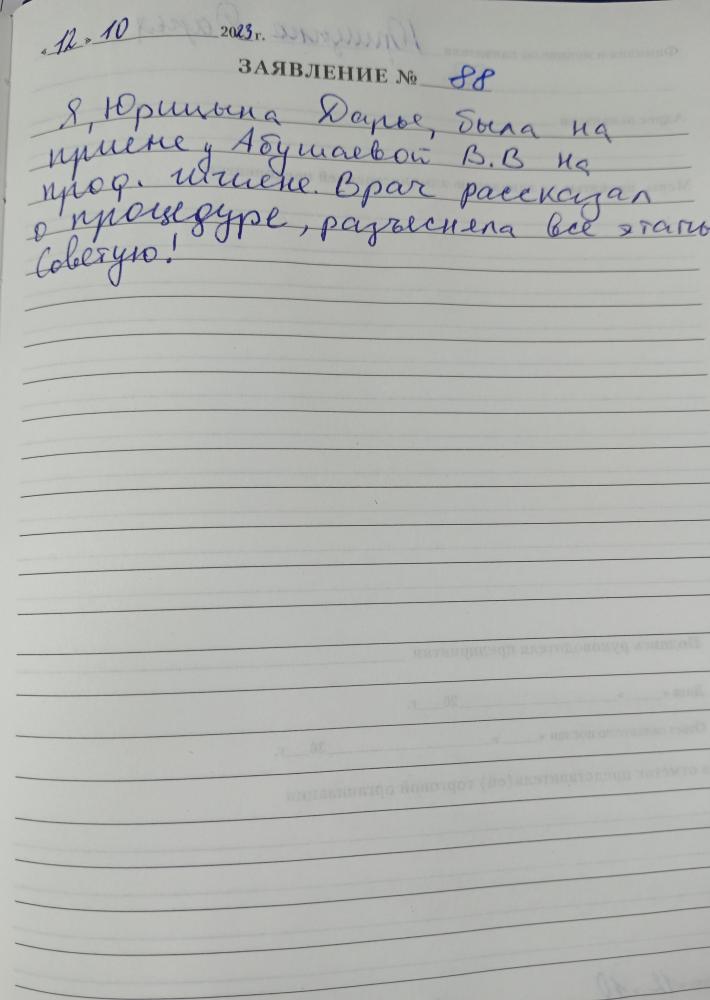 «12» 10 2023 г.
ЗАЯВЛЕНИЕ № 88
Я, Юрицына Дарье, была на
приеме у Абушаевой В.В на
проф. гигиене. Врач рассказал
о процедуре, разъесняла все этапы
Советую!